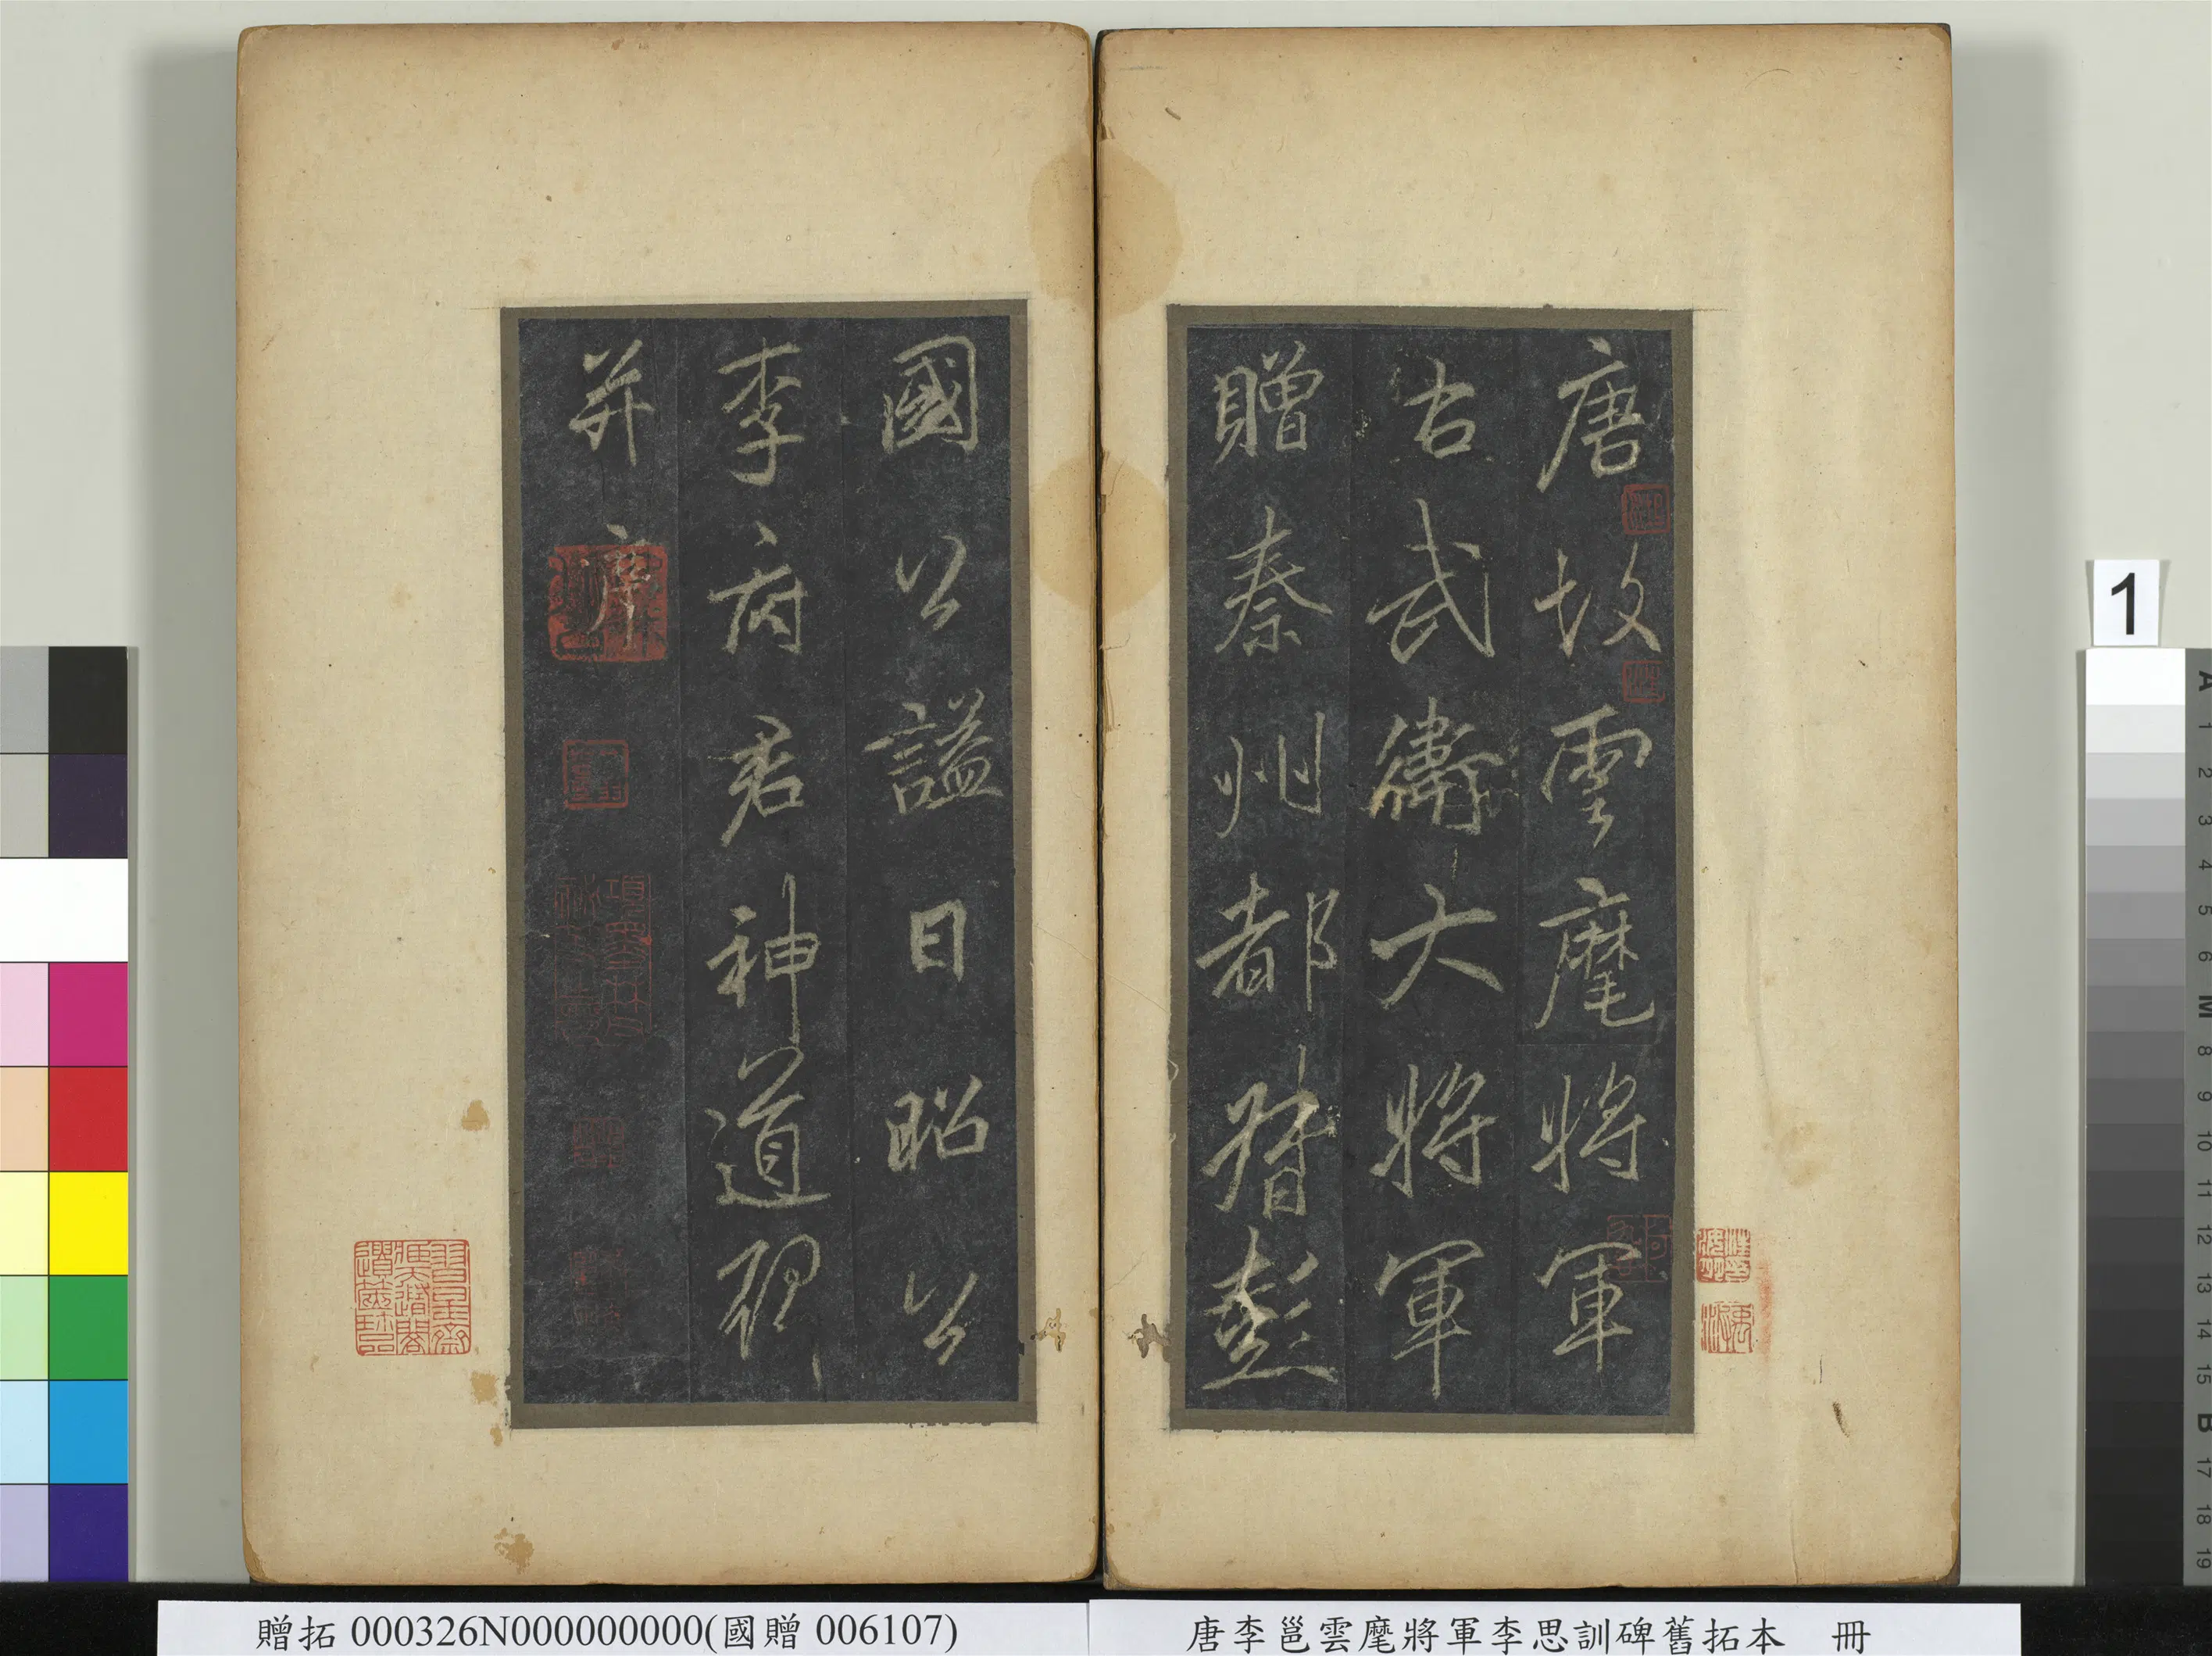 唐故雲麾將軍
右武衛大將軍
贈秦州都督彭
國公謚曰昭公
李府君神道碑
并序
贈拓 000326N000000000(國贈 006107)
唐李邕雲麾將軍李思訓碑舊拓本 冊
1
A
1
2
3
4
5
6
M
8
9
10
11
12
13
14
15
B
17
18
19